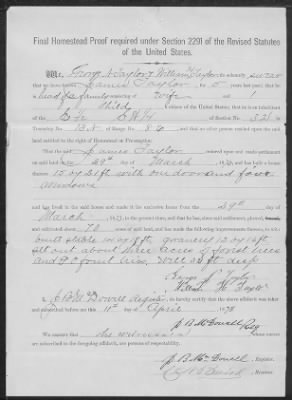 Final Homestead Proof required under Section 2291 of the Revised Statutes
of the United States.
We, George N Taylor & William Taylor do solemnly swear
that we have known James Taylor for 5 years last past; that he
is head of a family consisting of wife and 1
child citizen of the United States; that he is an inhabitant
of the of Section No. 32 in
Township No. 13 N of Range No. 8 and that no other person resided upon the said
land entitled to the right of Homestead or Pre-emption.
That the said James Taylor entered upon and made settlement
on said land on 29th day of March, 187 and has built a house
thereon 15 by 21 ft with one door and four
windows
and has lived in the said house and made it his exclusive home from the 29th day of
March, 187 to the present time, and that he has, since said settlement, plowed,
and cultivated 70 acres of said land, and has made the following improvements thereon, to wit:
built stable 14 by 18 ft, granery 12 by 16 ft
set out about three acres of forest trees
and 90 fruit trees, Well 25 ft deep
George N Taylor
William H Taylor
I, J. B. McDowell Register, do hereby certify that the above affidavit was taken and
subscribed before me this 11th day of April 1878
J. B. McDowell Reg
We certify that the witnesses whose names are
subscribed to the foregoing affidavits, are persons of respectability.
J. B. McDowell, Register.
, Receiver.